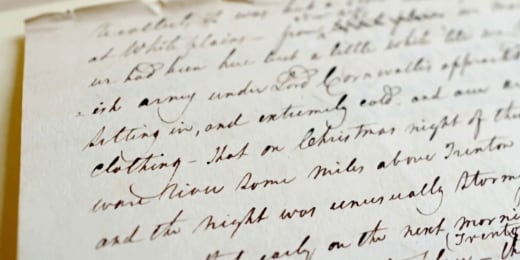 it was but a
at White plains – from plains
we had been here but a little while
ish army under Lord Cornwallis
setting in, and extremely cold. and our
clothing – That on Christmas night of
ware River some miles above Trenton
and the night was unusually stormy
early on the next morning
(Trenton